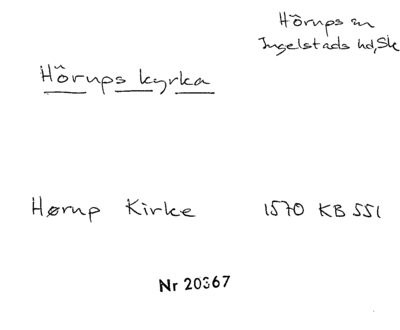 Hörups sn
Ingelstads hd, Sk
Hörups kyrka
Hørup Kirke 1570 KB 551
Nr 20367